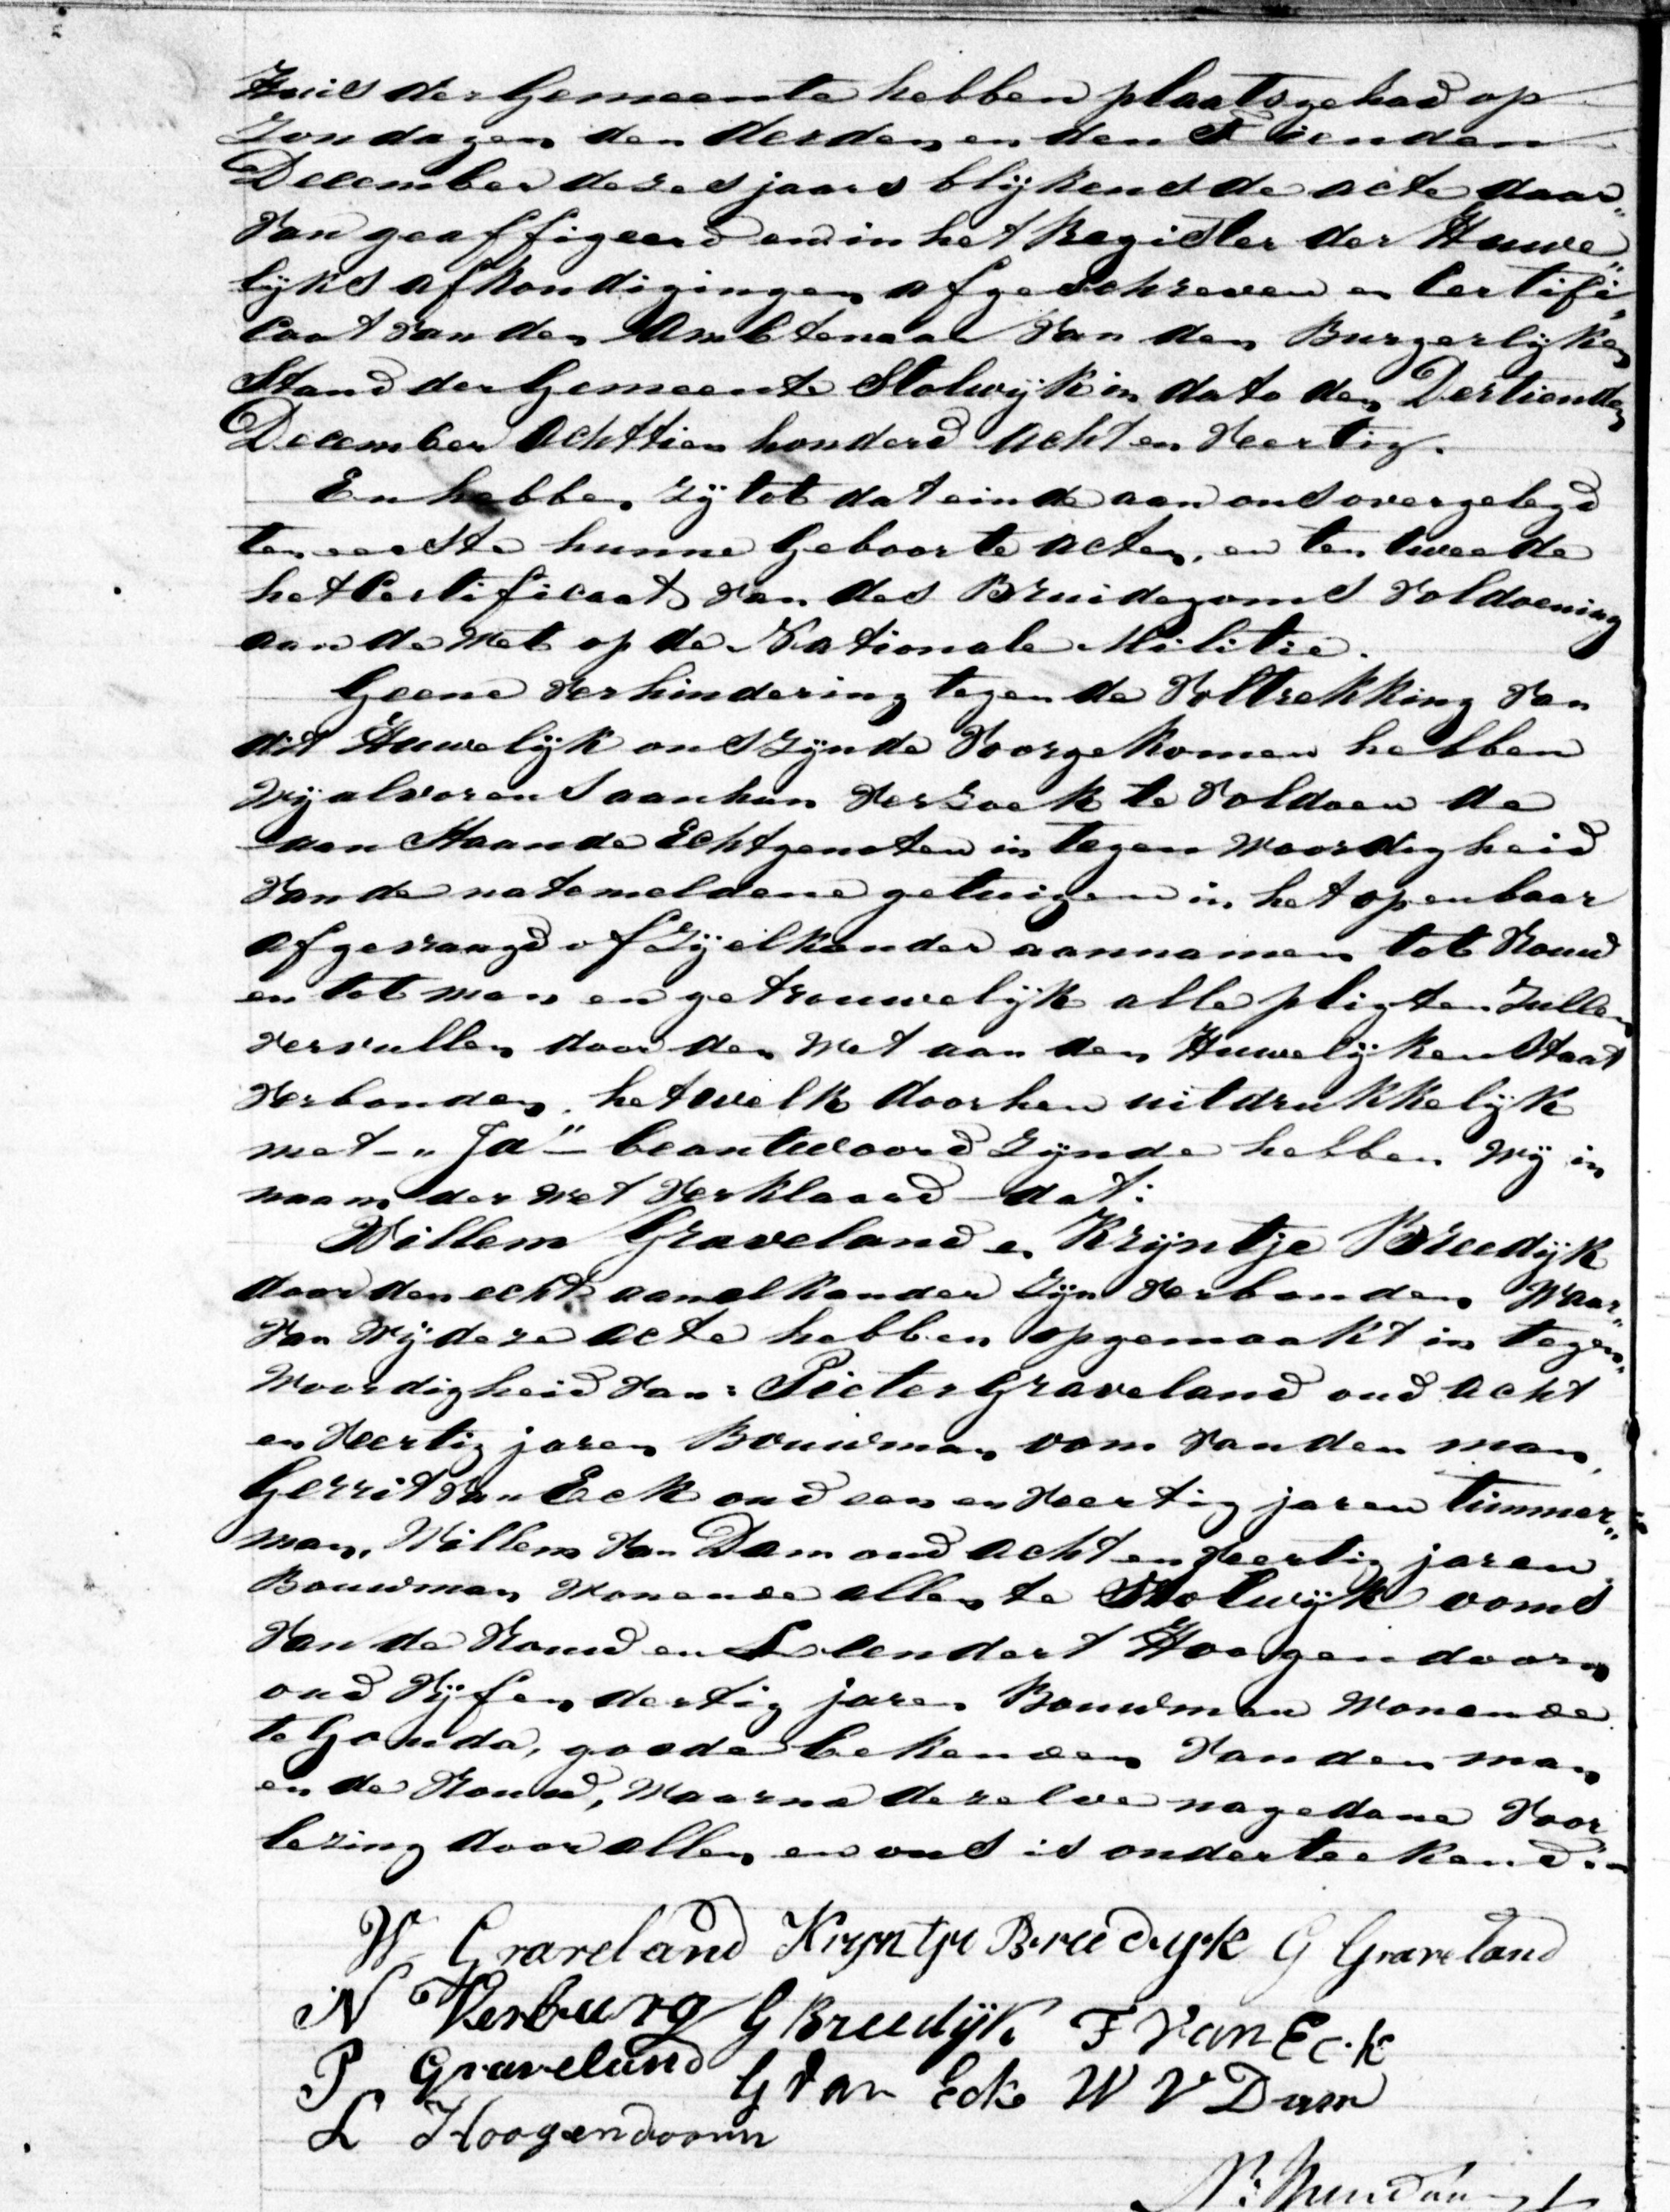 Huis der Gemeente hebben plaatsgehad op
Zondagen den derden en den Tienden
December dezes jaars blijkens de acte daar„
van geaffigeerd en in het Register der Huwe„
lijks afkondigingen afgeschreven en Certifi„
caat van den Ambtenaar van den Burgerlijken
Stand der Gemeente Stolwijk in dato den Dertienden
December Achttien honderd Acht en Veertig.
En hebben zij tot dat einde aan ons overgelegd
ten eerste hunne Geboorte acten, en ten tweede
het Certificaat van des Bruidegoms Voldoening
aan de Wet op de Nationale Militie.
Geene Verhindering tegen de Voltrekking van
dit Huwelijk ons zijnde Voorgekomen hebben
Wij alvorens aan hun Verzoek te Voldoen de
aan Staande Echtgenoten in tegen Woordigheid
van de natemeldene getuigen in het openbaar
afgevraagd of zij elkander aannamen tot Vrouw
en tot man en getrouwelijk alle pligten Zullen
vervullen door den Wet aan den Huwelijken Staat
Verbonden, hetwelk door hen uitdrukkelijk
met - „Ja" - beantwoord Zijnde hebben Wij in
naam der Wet Verklaard dat:
Willem Graveland en Krijntje Breedijk
door den echt aan elkander Zijn Verbonden Waar„
van Wij deze acte hebben opgemaakt in tegen„
Woordigheid van: Pieter Graveland oud Acht
en Veertig jaren Bouwman oom van den man,
Gerrit van Eck oud een en Veertig jaren timmer„
man, Willem van Dam oud acht en Veertig jaren
Bouwman Wonende allen te Stolwijk ooms
van de Vrouw en Leendert Hoogendoorn
oud Vijf en dertig jaren Bouwman Wonende
te Gouda, goede bekenden van den man
en de Vrouw, Waarna dezelve na gedane Voor
lezing door allen en ons is onderteekend.
W Graveland Kryntje Breedyk G Graveland
N Verburg G Breedijk F Van Eck
P Graveland G Van Eck W V Dam
L Hoogendoorn